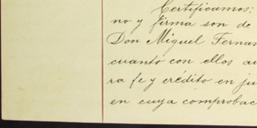 Certificamos:
no y firma son de
Don Miguel Fernan
cuanto con ellos au
ra fe y crédito en ju
en cuya comprobac